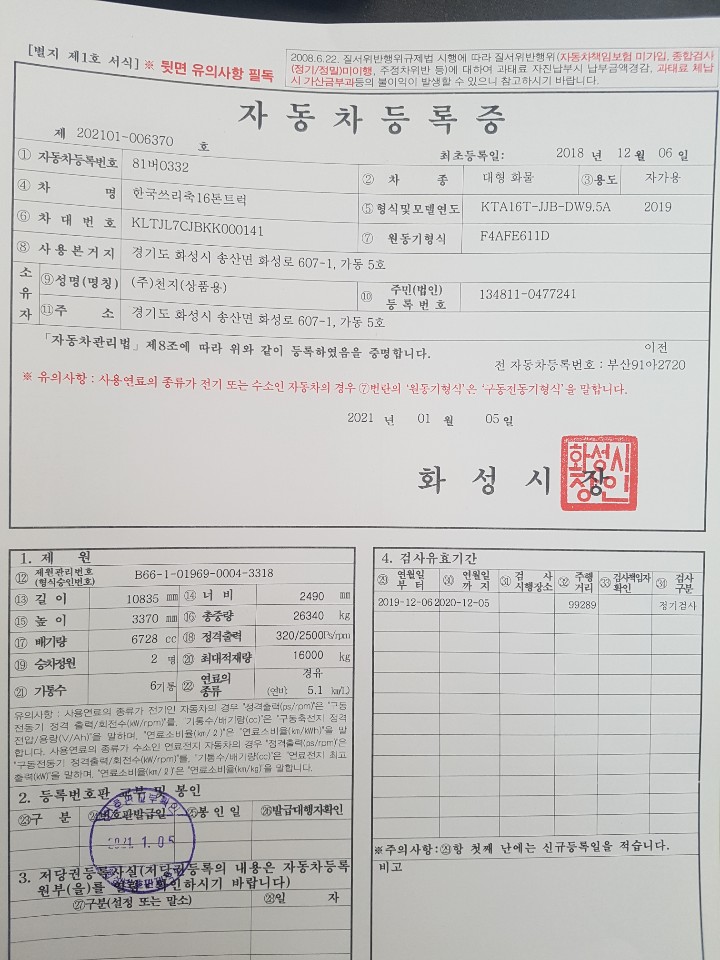 [별지 제1호 서식] ※ 뒷면 유의사항 필독
2008.6.22. 질서위반행위규제법 시행에 따라 질서위반행위(자동차책임보험 미가입, 종합검사
(정기/정밀)미이행, 주정차위반 등)에 대하여 과태료 자진납부시 납부금액경감, 과태료 체납
시 가산금부과등의 불이익이 발생할 수 있으니 참고하시기 바랍니다.
자동차등록증
제 202101-006370 호
최초등록일: 2018 년 12 월 06 일
① 자동차등록번호 81버0332 ② 차 종 대형 화물 ③용도 자가용
④ 차 명 한국쓰리축16톤트럭 ⑤ 형식및모델연도 KTA16T-JJB-DW9.5A 2019
⑥ 차 대 번 호 KLTJL7CJBKK000141 ⑦ 원동기형식 F4AFE611D
⑧ 사 용 본 거 지 경기도 화성시 송산면 화성로 607-1, 가동 5호
소유자 ⑨성명(명칭) (주)천지(상품용) ⑩ 주민(법인)등록번호 134811-0477241
⑪주 소 경기도 화성시 송산면 화성로 607-1, 가동 5호
「자동차관리법」제8조에 따라 위와 같이 등록하였음을 증명합니다.
이전
전 자동차등록번호 : 부산91아2720
※ 유의사항 : 사용연료의 종류가 전기 또는 수소인 자동차의 경우 ⑦번란의 '원동기형식'은 '구동전동기형식'을 말합니다.
2021 년 01 월 05 일
화 성 시 장
화성시장인
1. 제 원
⑫ 제원관리번호 (형식승인번호) B66-1-01969-0004-3318
⑬ 길 이 10835 mm ⑭ 너 비 2490 mm
⑮ 높 이 3370 mm ⑯ 총중량 26340 kg
⑰ 배기량 6728 cc ⑱ 정격출력 320/2500Ps/rpm
⑲ 승차정원 2 명 ⑳ 최대적재량 16000 kg
㉑ 기통수 6기통 ㉒ 연료의 종류 경유 (연비) 5.1 km/L)
유의사항 : 사용연료의 종류가 전기인 자동차의 경우 "정격출력(ps/rpm)"은 "구동
전동기 정격 출력/회전수(kW/rpm)"를, "기통수/배기량(cc)"은 "구동축전지 정격
전압/용량(V/Ah)"을 말하며, "연료소비율(km/ℓ)"은 "연료소비율(km/kWh)"을 말
합니다. 사용연료의 종류가 수소인 연료전지 자동차의 경우 "정격출력(ps/rpm)"은
"구동전동기 정격출력/회전수(kW/rpm)"를, "기통수/배기량(cc)"은 "연료전지 최고
출력(kW)"을 말하며, "연료소비율(km/ℓ)"은 "연료소비율(km/kg)"을 말합니다.
2. 등록번호판 교부 및 봉인
㉓구 분 ㉔번호판발급일 ㉕봉 인 일 ㉖발급대행자확인
2021 1. 05
3. 저당권등록사실(저당권등록의 내용은 자동차등록
원부(을)를 열람 확인하시기 바랍니다)
㉗구분(설정 또는 말소) ㉘일 자
4. 검사유효기간
㉙ 연월일부터 ㉚ 연월일까지 ㉛ 검사시행장소 ㉜ 주행거리 ㉝ 검사책임자확인 ㉞ 검사구분
2019-12-06 2020-12-05 99289 정기검사
※주의사항:㉙항 첫째 난에는 신규등록일을 적습니다.
비고